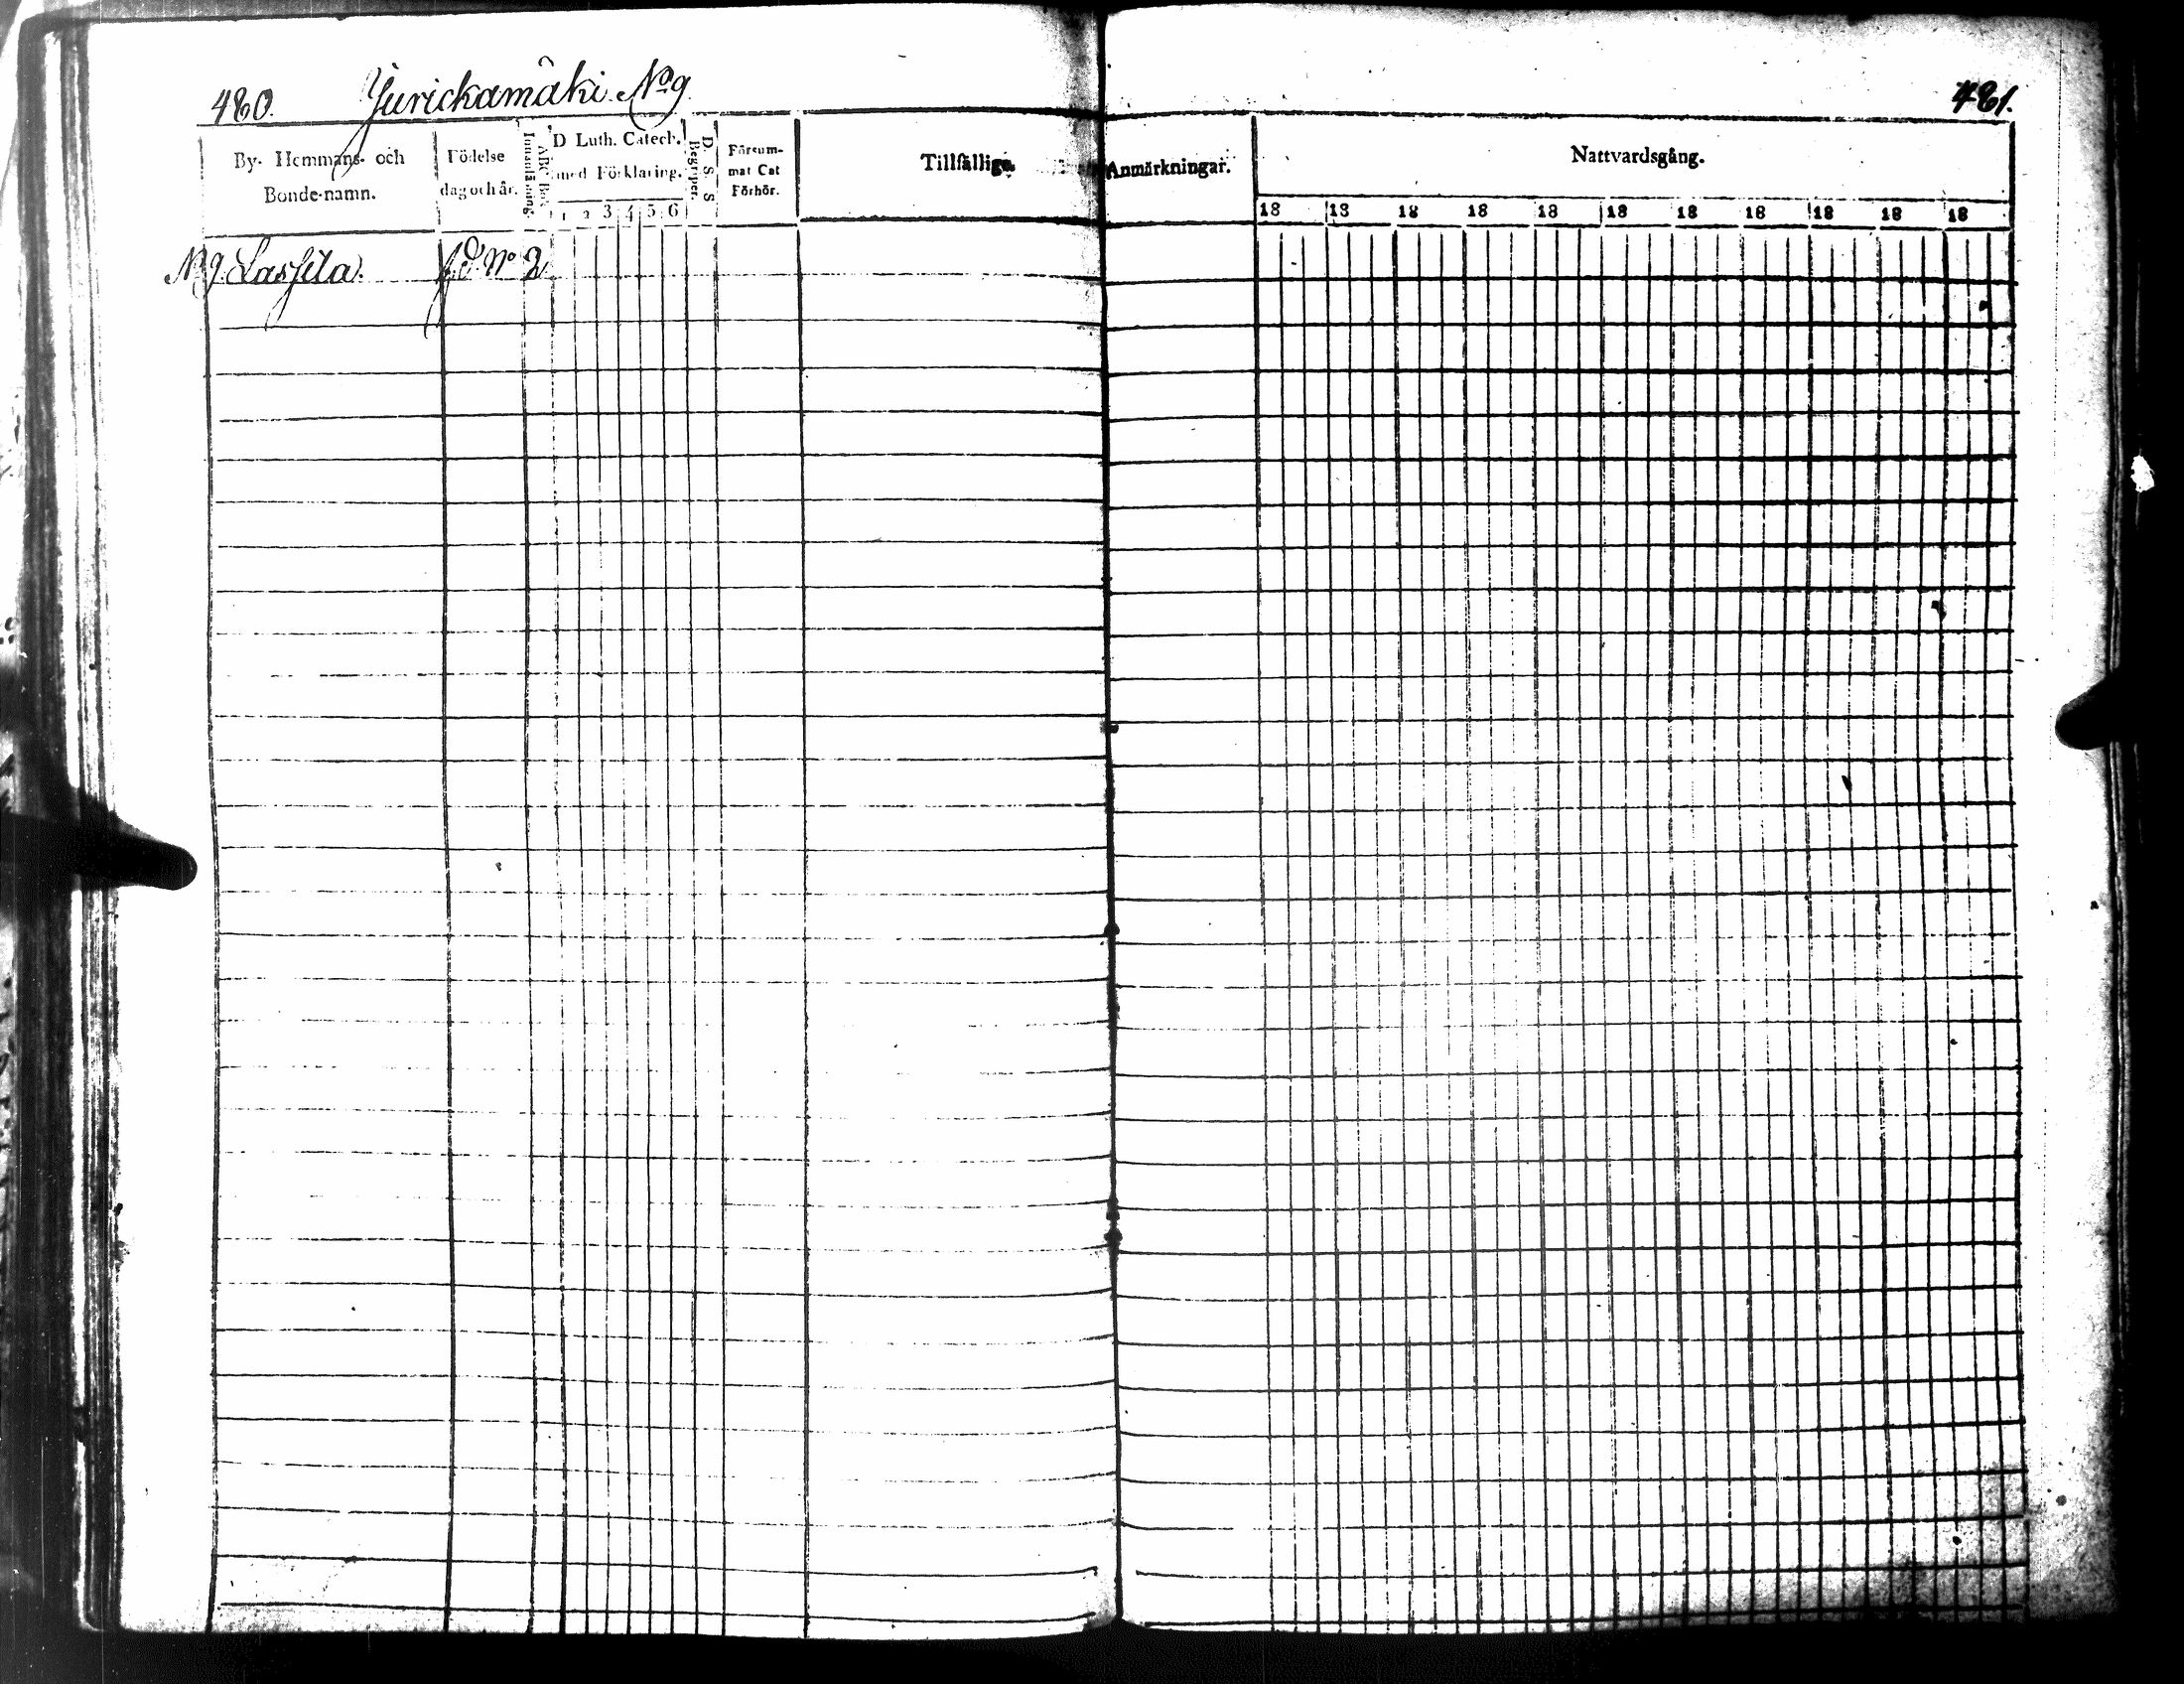 480. Jurickamäki No 9
481.
By- Hemmans- och Bonde-namn.
Födelse dag och år.
Innanläsning.
ABC Bok
D Luth. Catech. med Förklaring.
1 2 3 4 5 6
D. S. S
Begriper.
Försum-
mat Cat
Förhör.
Tillfällige Anmärkningar.
Nattvardsgång.
18 18 18 18 18 18 18 18 18 18 18
N 9 Lassila. No 2